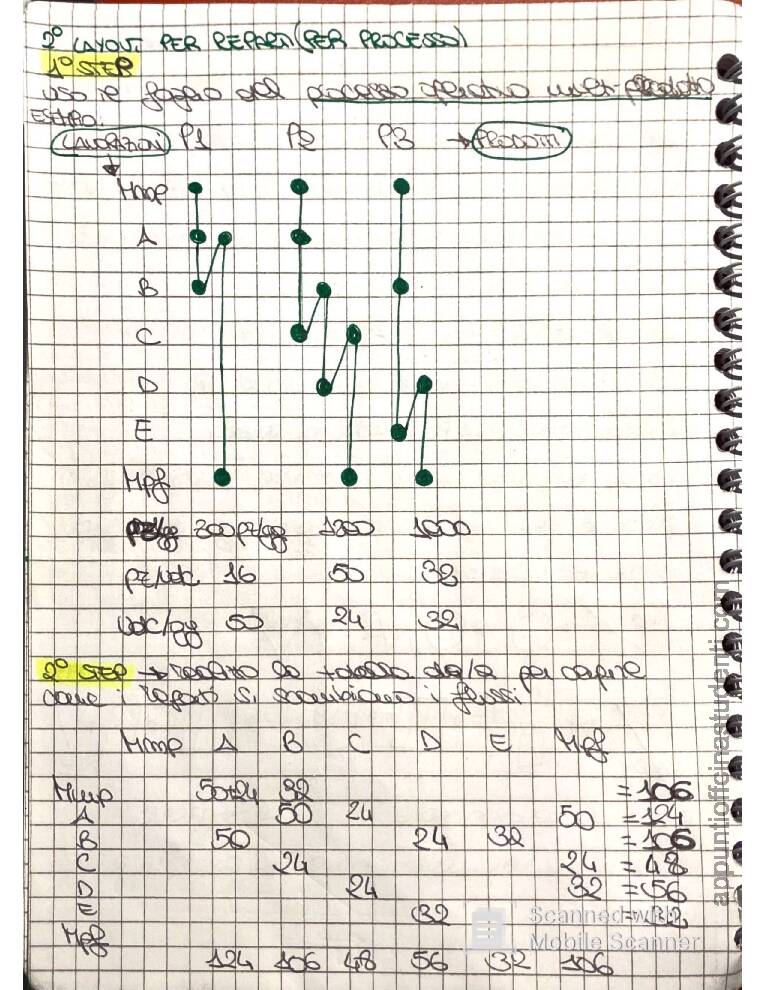 2° LAYOUT PER REPARTI (PER PROCESSO)
1° STEP
uso il foglio del processo operativo multi-prodotto
ESEMPIO:
LAVORAZIONI P1 P2 P3 → PRODOTTI
Mmp
A
B
C
D
E
Mpf
pz/gg 300 pz/gg 1200 1000
pz/udc 16 50 32
udc/gg 50 24 32
2° STEP → realizzo la tabella da/a per capire
come i reparti si scambiano i flussi
Mmp A B C D E Mpf
Mmp 50+24 32 = 106
A 50 24 50 = 124
B 50 24 32 = 106
C 24 24 = 48
D 24 32 = 56
E 32 = 32
Mpf
124 106 48 56 32 106
Scanned with
Mobile Scanner
appuntiofficinastudenti.com